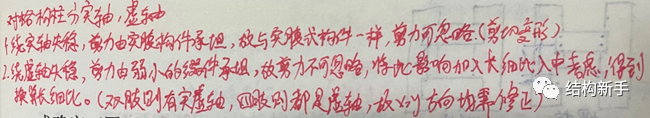 对格构柱分实轴,虚轴
1.绕实轴失稳,剪力由实腹构件承担,故与实腹式构件一样,剪力可忽略(剪切变形)
2.绕虚轴失稳,剪力由弱小的缀件承担,故剪力不可忽略,将此影响加入长细比入中考虑,得到
换算长细比。(双肢则有实虚轴,四肢则都是虚轴,故x,y方向均需修正)
结构新手